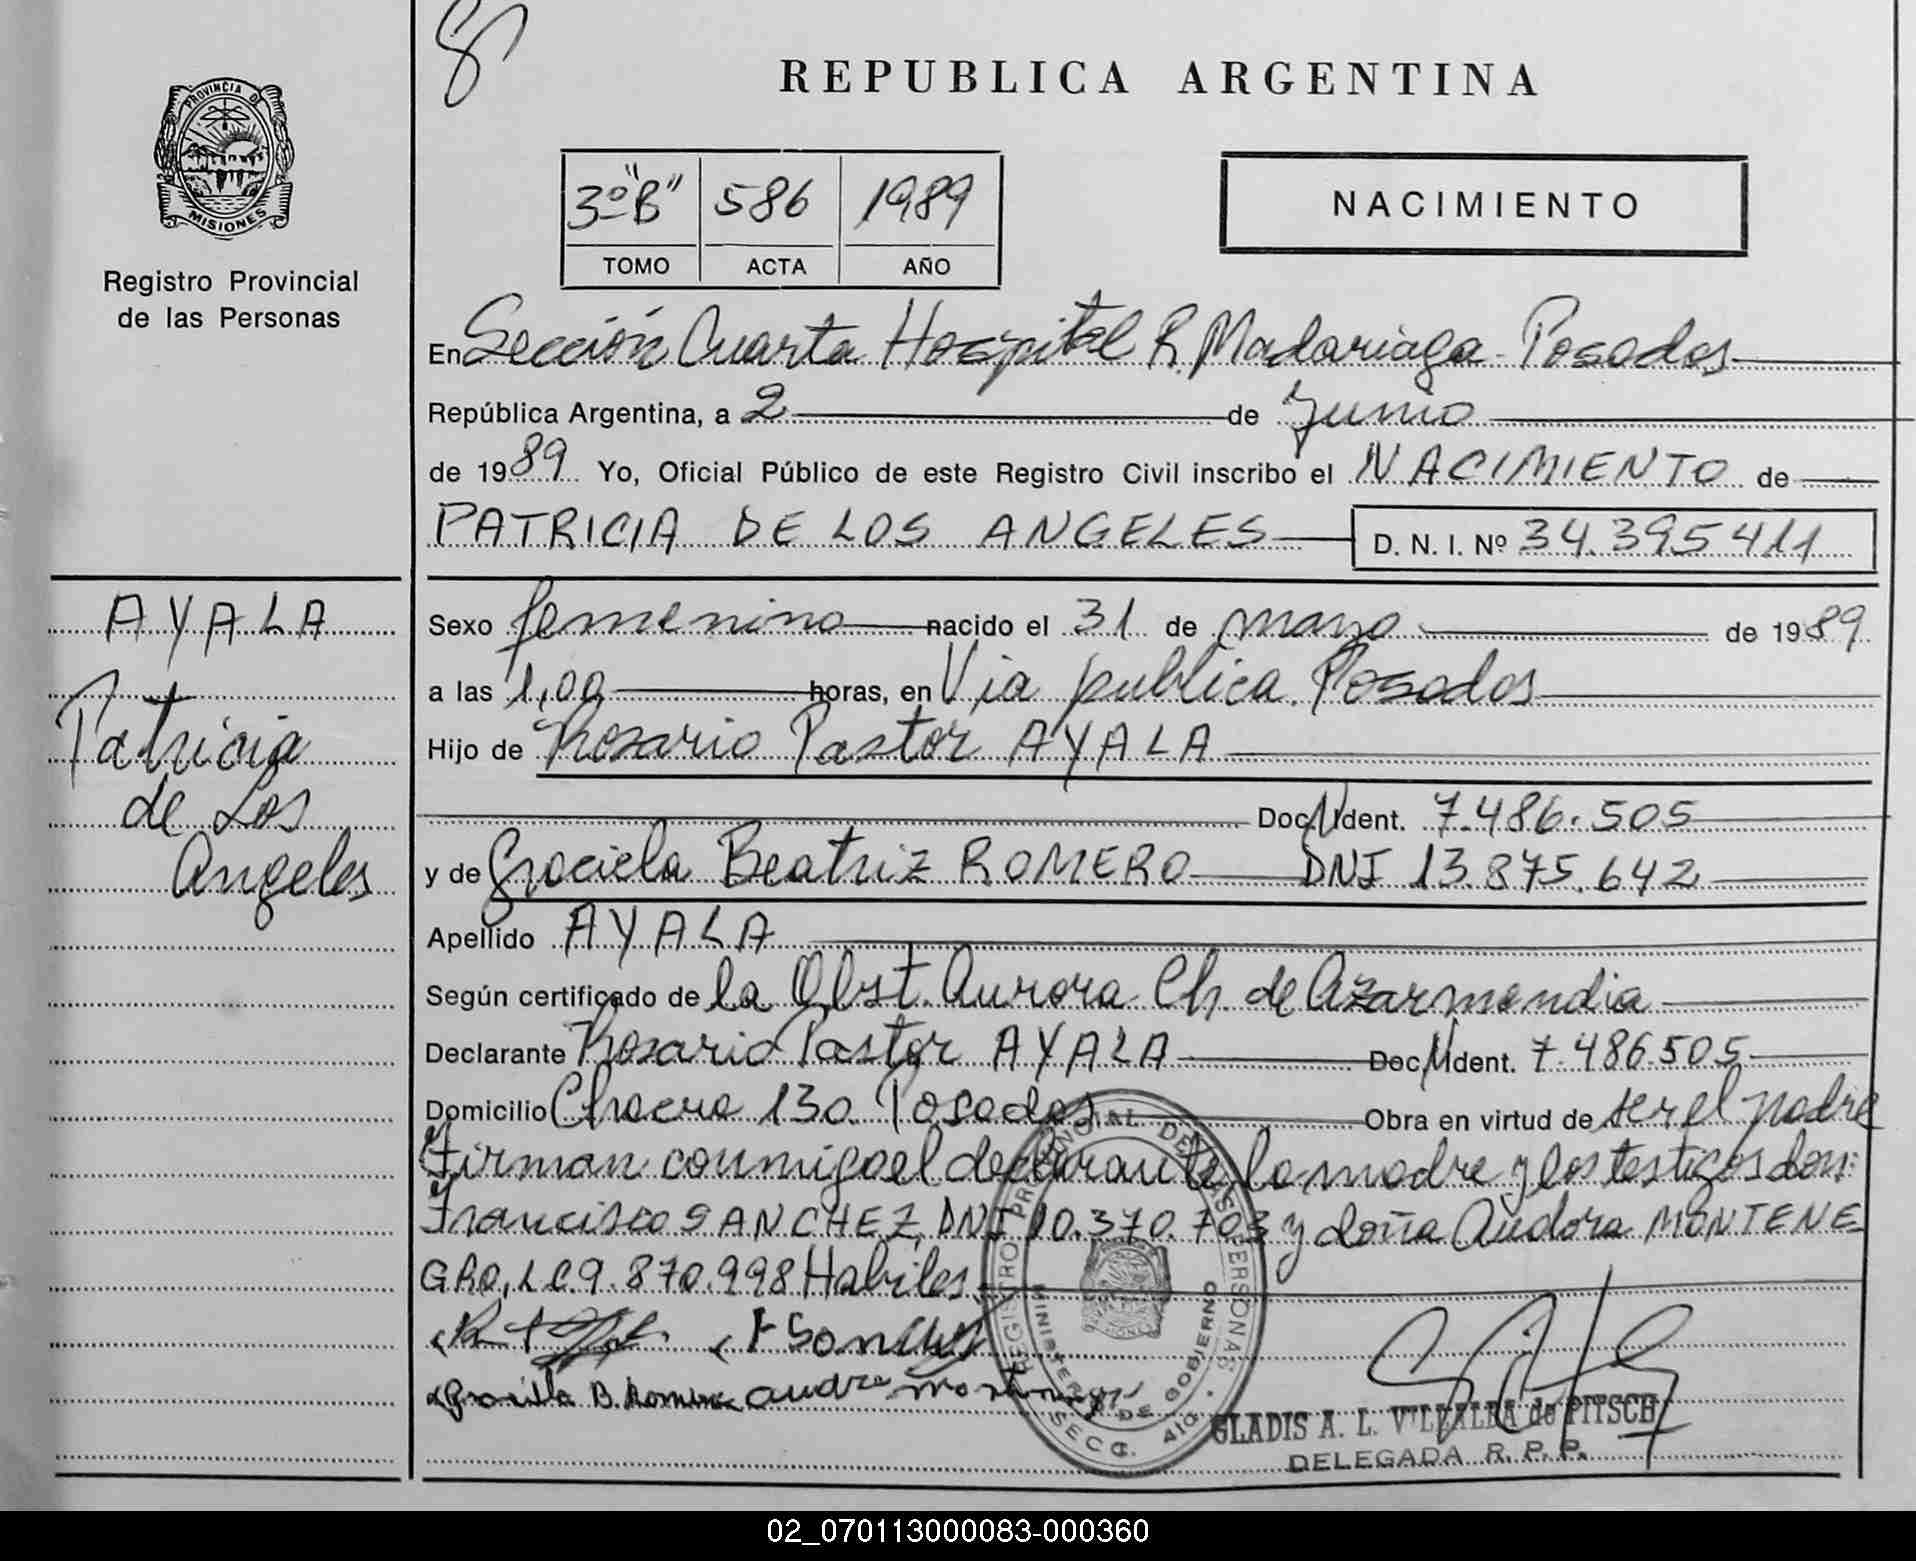 8
PROVINCIA DE
MISIONES
Registro Provincial
de las Personas
AYALA
Patricia
de Los
Angeles
REPUBLICA ARGENTINA
3º "B" 586 1989
TOMO ACTA AÑO
NACIMIENTO
En Sección Cuarta Hospital R. Madariaga - Posadas
República Argentina, a 2 de Junio
de 1989 Yo, Oficial Público de este Registro Civil inscribo el NACIMIENTO de
PATRICIA DE LOS ANGELES D. N. I. Nº 34.395411
Sexo femenino nacido el 31 de mayo de 1989
a las 1,00 horas, en Via publica. Posadas
Hijo de Rosario Pastor AYALA
Doc. Ident. 7.486.505
y de Graciela Beatriz ROMERO DNI 13.875.642
Apellido AYALA
Según certificado de la Obst. Aurora Ch. de Azarmendia
Declarante Rosario Pastor AYALA Doc. Ident. 7.486.505
Domicilio Chacra 130. Posadas Obra en virtud de ser el padre
Firman conmigo el declarante, la madre y los testigos don:
Francisco SANCHEZ, DNI 10.370.703 y doña Audora MONTENE
GRO, LC. 9.870.998 Habiles.
F Sanchez
Graciela B. Romero
REGISTRO PROVINCIAL DE LAS PERSONAS
MINISTERIO DE GOBIERNO
SECC. 4ta.
GLADIS A. L. VILLALBA de PITSCH
DELEGADA R. P. P.
02_070113000083-000360